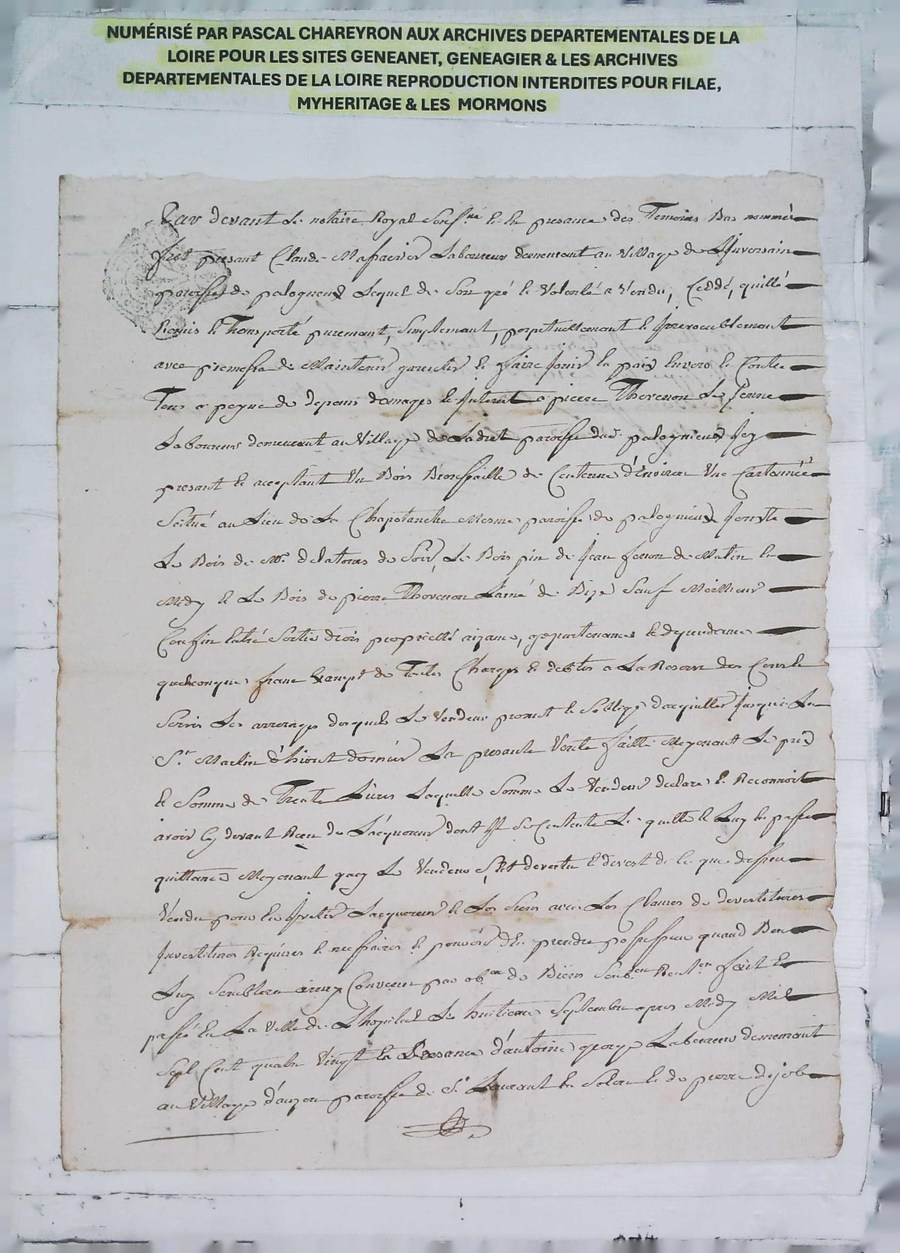 NUMÉRISÉ PAR PASCAL CHAREYRON AUX ARCHIVES DEPARTEMENTALES DE LA
LOIRE POUR LES SITES GENEANET, GENEAGIER & LES ARCHIVES
DEPARTEMENTALES DE LA LOIRE REPRODUCTION INTERDITES POUR FILAE,
MYHERITAGE & LES MORMONS
Par devant Le notaire Royal et En presance des Temoins Bas nommés
fut presant Claude Laboureur demeurant au Village de
paroisse de palognieux Lequel de Son gré et Volonté a Vendu, Ceddé, quitté
Remis et Transporté purement, Simplement, perpetuellement et Irrevocablement
avec promesse de Maintenir garantir et faire Jouir En paix Envers et Contre
Tous a peyne de depans domages et Interest a pierre Thevenon Le Jeune
Laboureur demeurant au Village de paroisse dud. palognieux Icy
presant et acceptant Un Bois de Contenue d'Environ Une Cartonnée
Scitué au Lieu de La Mesme paroisse de palognieux Joint
Le Bois de Mr. de Soir, Le Bois pin de Jean de Matin et
Midy et Le Bois de pierre Thevenon Lainé de Bize Sauf Meilleur
Confin Entré Sortie drois proprietté aizance, apartenance et dependance
quelconque franc Exampt de Toutes Charges et debtes a La Reserve des Cens et
Servis Les arrerages desquels Le Vendeur promet et Soblige dacquitter Jusques La
St. Martin d'hiver dernier La presante Vente faitte Moyenant Le prix
et Somme de Trente Livres Laquelle Somme Le Vendeur declare et Reconnoit
avoir Cy devant Receu de Lacquereur dont Il Se Contente Len quitte et Luy En passe
quittance Moyenant quoy Le Vendeur Sest devetu et devest de Ce que dessus
Vendu pour En Investir Lacquereur et Les Siens avec Les Clauses de devestitures
Investitures Requises et necessaires et pouvoir den prendre possession quand Bon
Luy Semblera ainsy Convenu par obon de Biens fait et
passé En La Ville de Lhopital Le huitieme Septembre apres Midy Mil
Sept Cent quatre Vingt En Presance d'antoine Laboureur demeurant
au Village paroisse de St. Laurant En Solore et de pierre